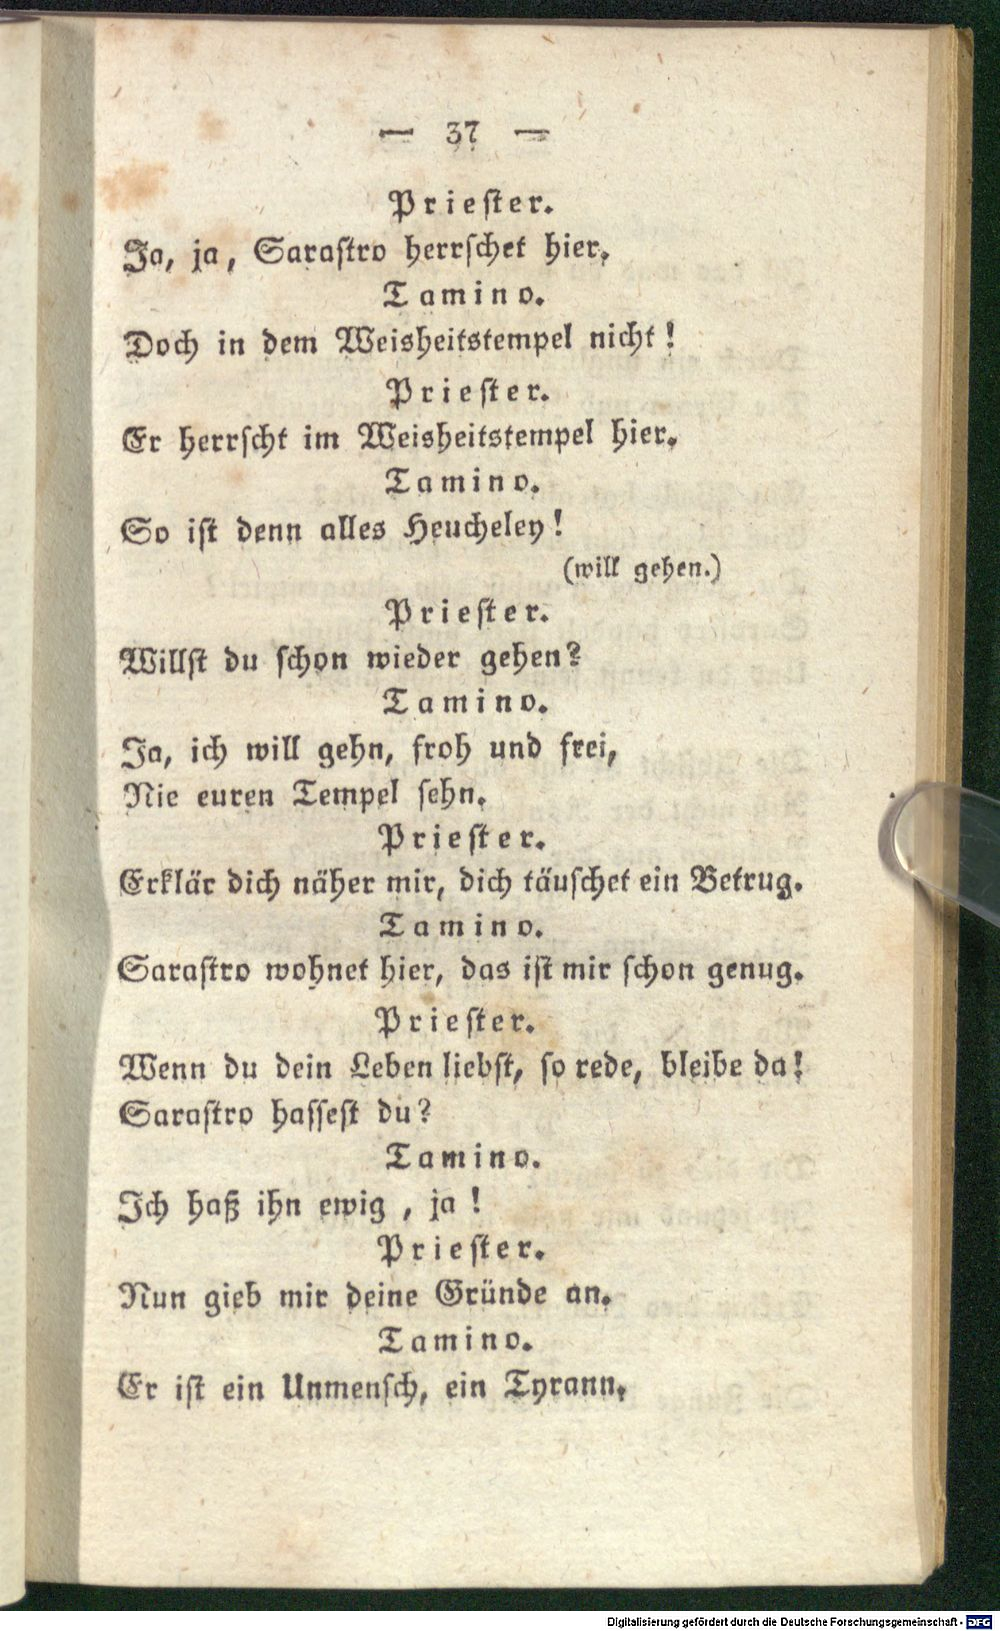 — 37 —
Priester.
Ja, ja, Sarastro herrschet hier.
Tamino.
Doch in dem Weisheitstempel nicht!
Priester.
Er herrscht im Weisheitstempel hier.
Tamino.
So ist denn alles Heucheley!
(will gehen.)
Priester.
Willst du schon wieder gehen?
Tamino.
Ja, ich will gehn, froh und frei,
Nie euren Tempel sehn.
Priester.
Erklär dich näher mir, dich täuschet ein Betrug.
Tamino.
Sarastro wohnet hier, das ist mir schon genug.
Priester.
Wenn du dein Leben liebst, so rede, bleibe da!
Sarastro hassest du?
Tamino.
Ich haß ihn ewig, ja!
Priester.
Nun gieb mir deine Gründe an.
Tamino.
Er ist ein Unmensch, ein Tyrann.
Digitalisierung gefördert durch die Deutsche Forschungsgemeinschaft - DFG